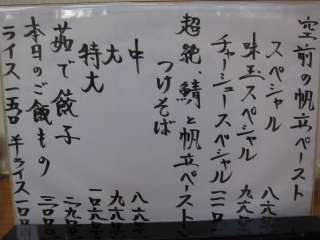 空前の帆立ペースト
スペシャル 八六〇
味玉スペシャル 九六〇
チャーシュースペシャル 一一一〇
超絶、鯖と帆立ペースト
つけそば
中 八六〇
大 九六〇
特大 一〇六〇
茹で餃子 二九〇
本日のご飯もの 三〇〇
ライス一五〇 半ライス一〇〇